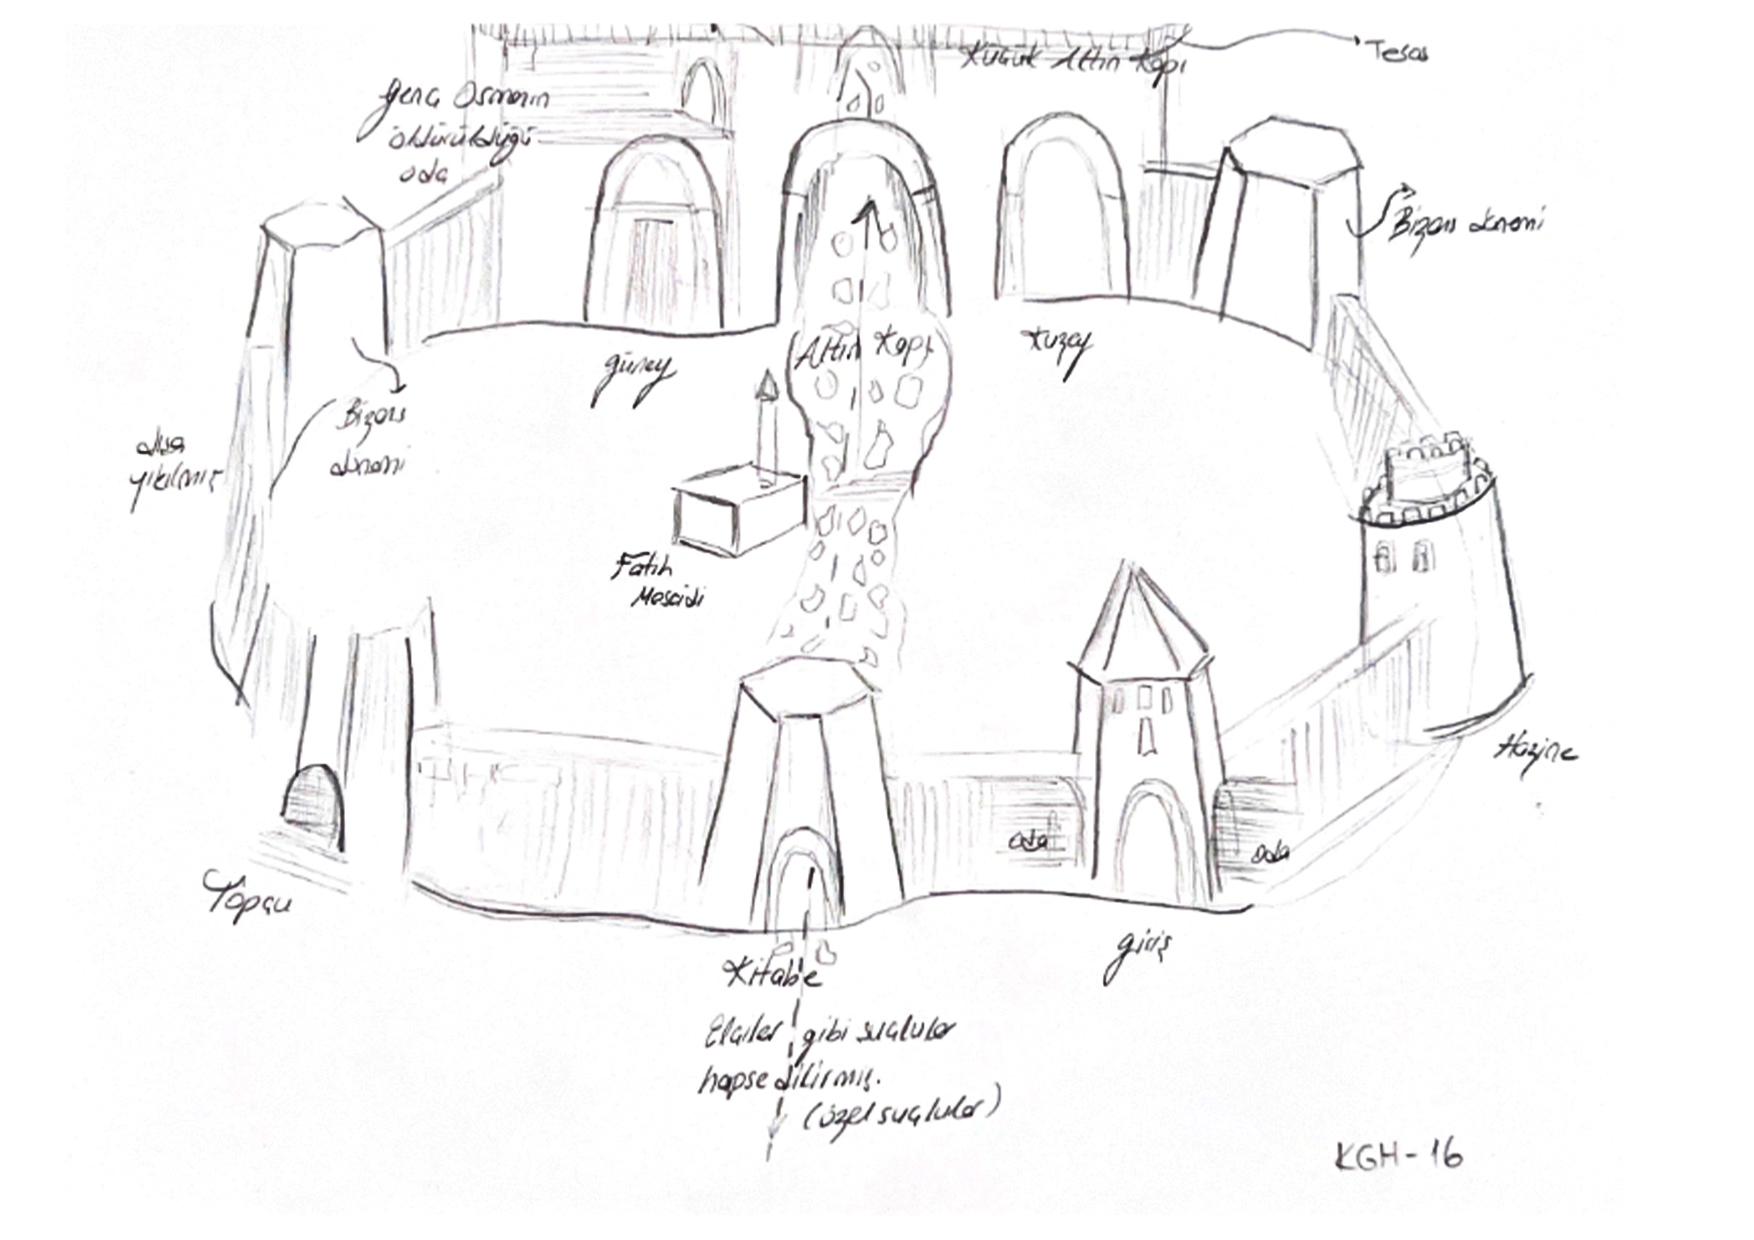 Küçük Altın Kapı
Tesas
Genç Osmanın
öldürüldüğü
oda
Bizans dönemi
Altın Kapı
Güney
Kuzey
Bizans
dönemi
yıkılmış
Fatih
Mescidi
Hazine
oda
oda
Topçu
giriş
Kitabe
Elçiler gibi suçlular
hapsedilirmiş.
(özel suçlular)
KGH-16